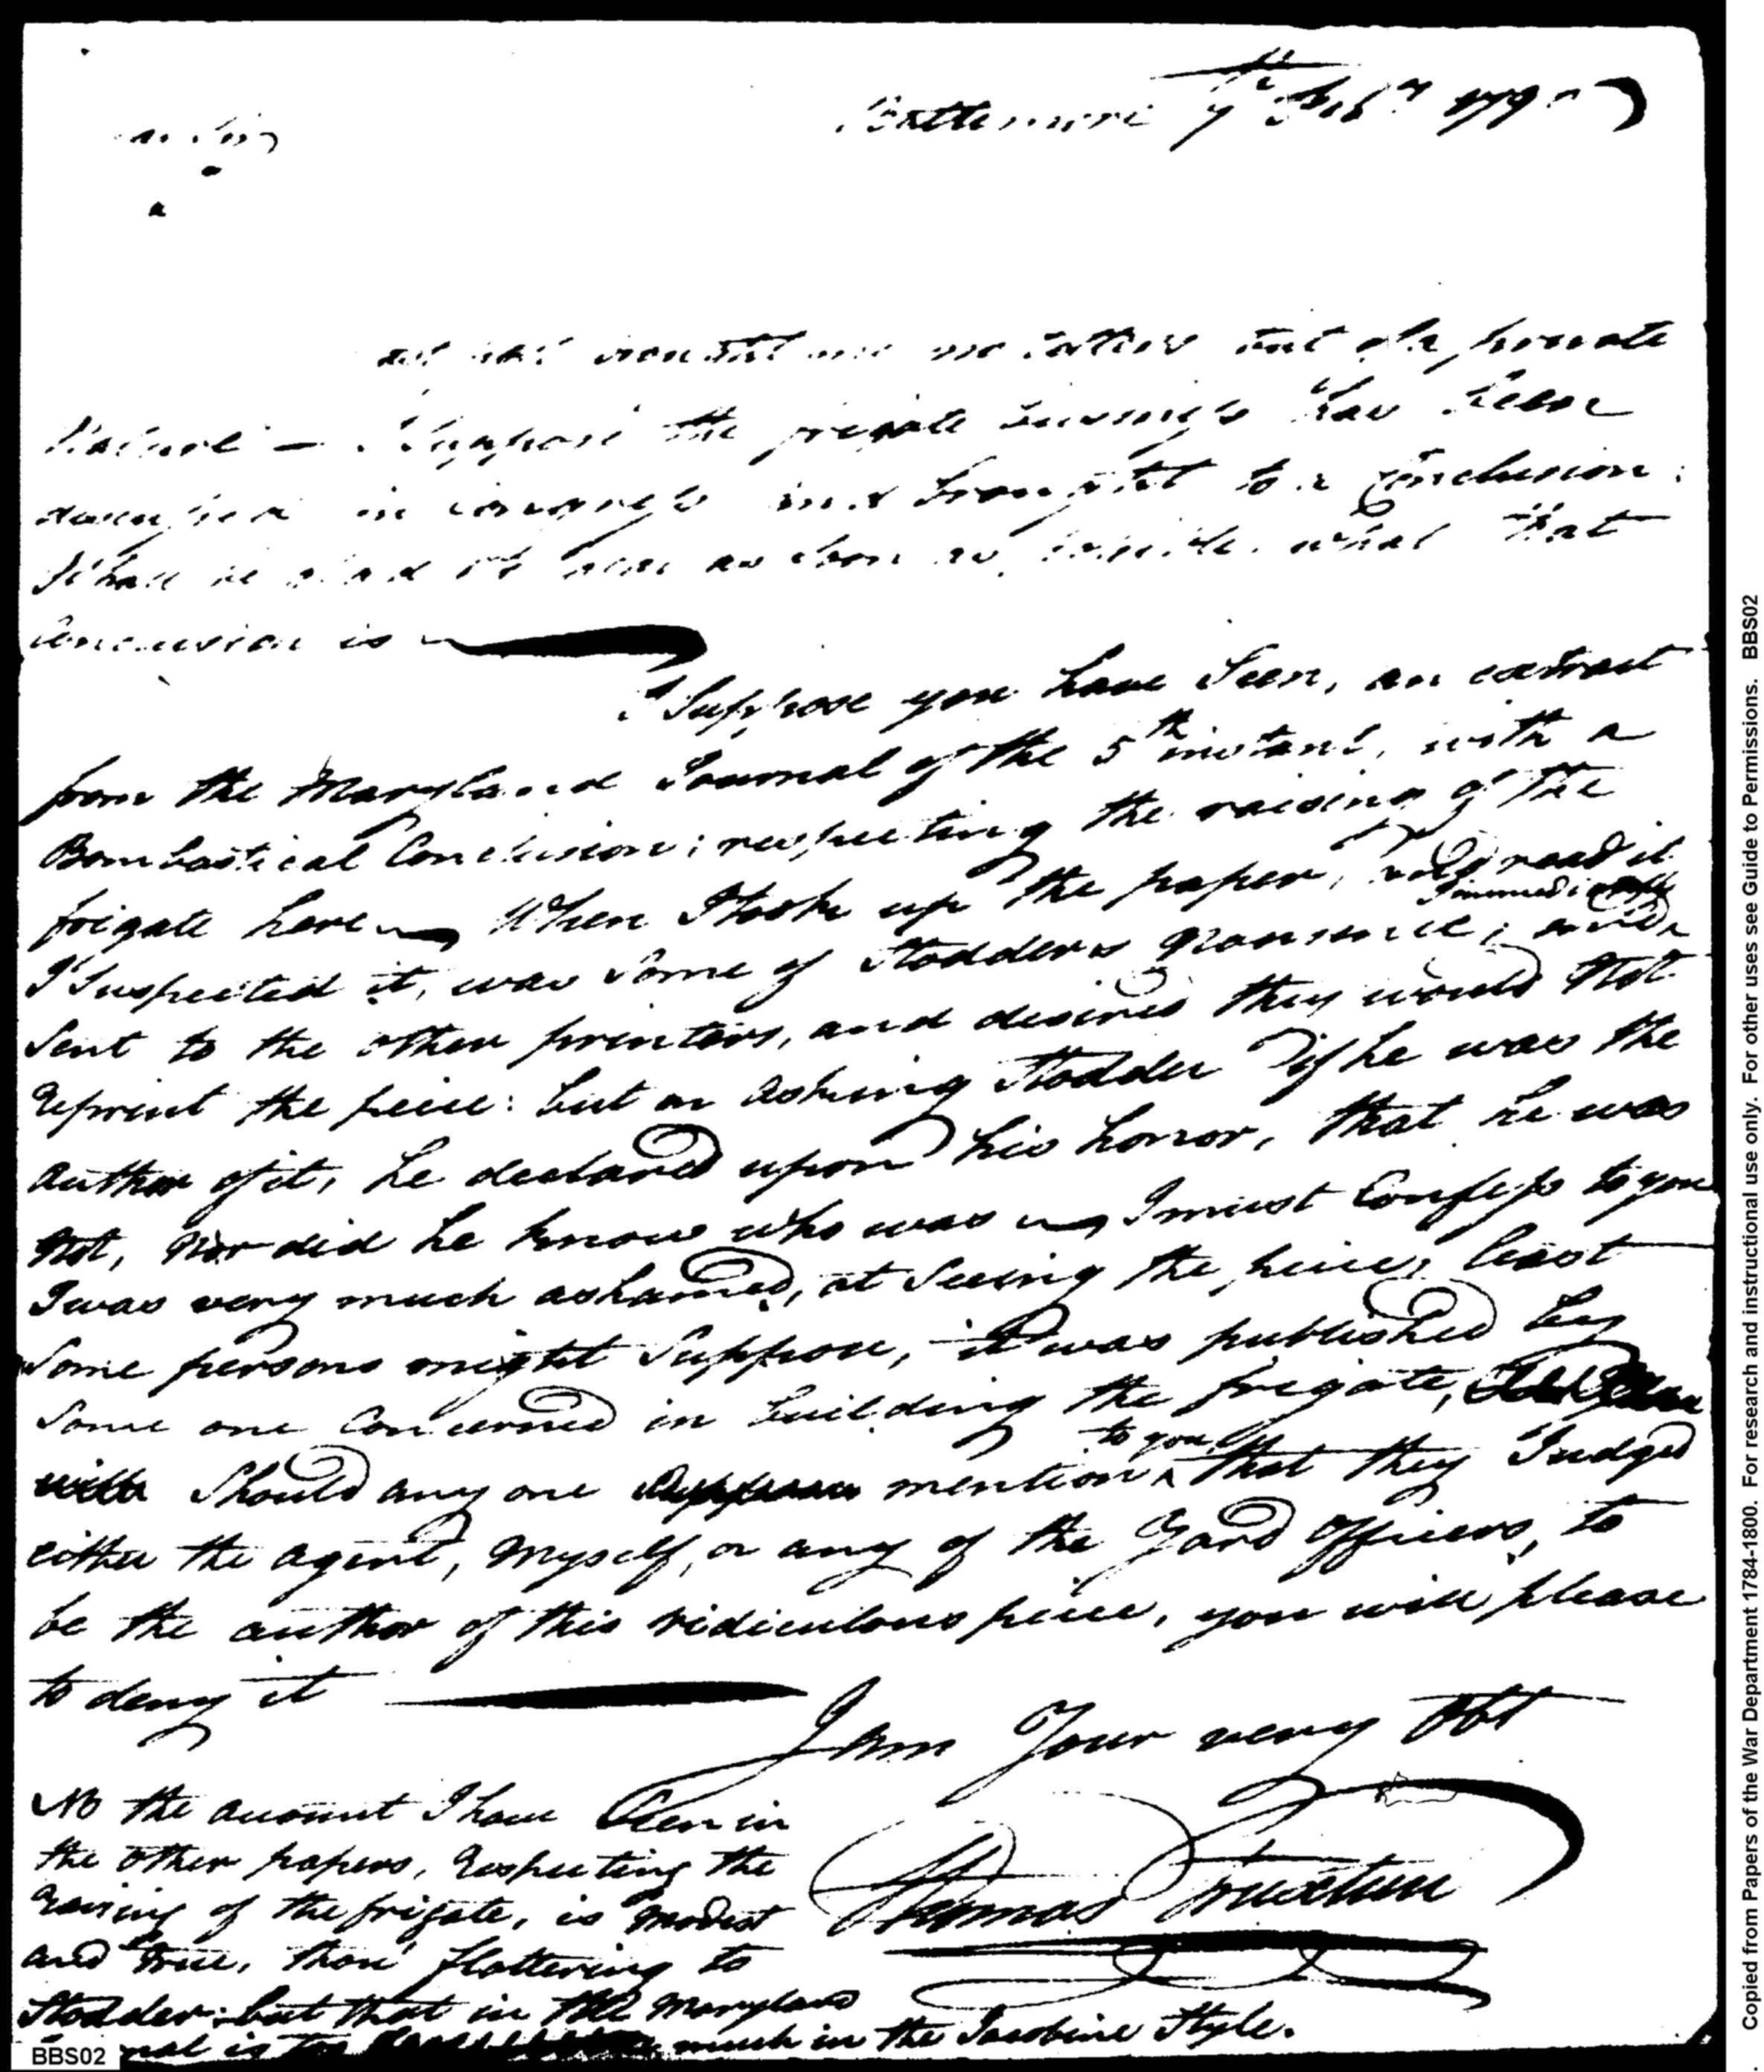 Baltimore 7th Feby 179
brought me no letters but of a private
Nature — I Suppose the frigate business has been
in Congress and brought to a Conclusion.
I Shall be glad to hear as soon as possible what that
Conclusion is
I Suppose you have Seen, an extract
from the Maryland Journal of the 5th instant, with a
Bombastical Conclusion; respecting the raising of the
frigate here — When I took up the paper, and read it
I Suspected it, was Some of Stodders Nonsence; and immediately
Sent to the other printers, and desired they would Not
reprint the peice: but on asking Stodder if he was the
author of it, he declared upon his honor, that he was
Not, Nor did he know who was — I must Confess to you
I was very much ashamed, at Seeing the peice, least
Some persons might Suppose, it was published by
Some one Concerned in building the frigate,
Should any one mention to you that they Judged
either the agent, Myself, or any of the Yard Officers, to
be the author of this ridiculous peice, you will please
to deny it
I am Your very Obt
Thomas Truxtun
NB the account I have Seen in
the other papers, respecting the
raising of the frigate, is modest
and True, thou' flattering to
Stodder: but that in the Maryland
nal is too much in the Jacobine Style.
BBS02
Copied from Papers of the War Department 1784-1800. For research and instructional use only. For other uses see Guide to Permissions. BBS02